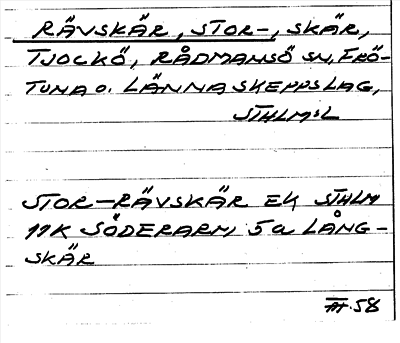 RÄVSKÄR, STOR-, SKÄR,
TJOCKÖ, RÅDMANSÖ SN, FRÖ-
TUNA O. LÄNNA SKEPPSLAG,
STHLM:L
STOR-RÄVSKÄR EK STHLM
11K SÖDERARM, 5a LÅNG-
SKÄR
58